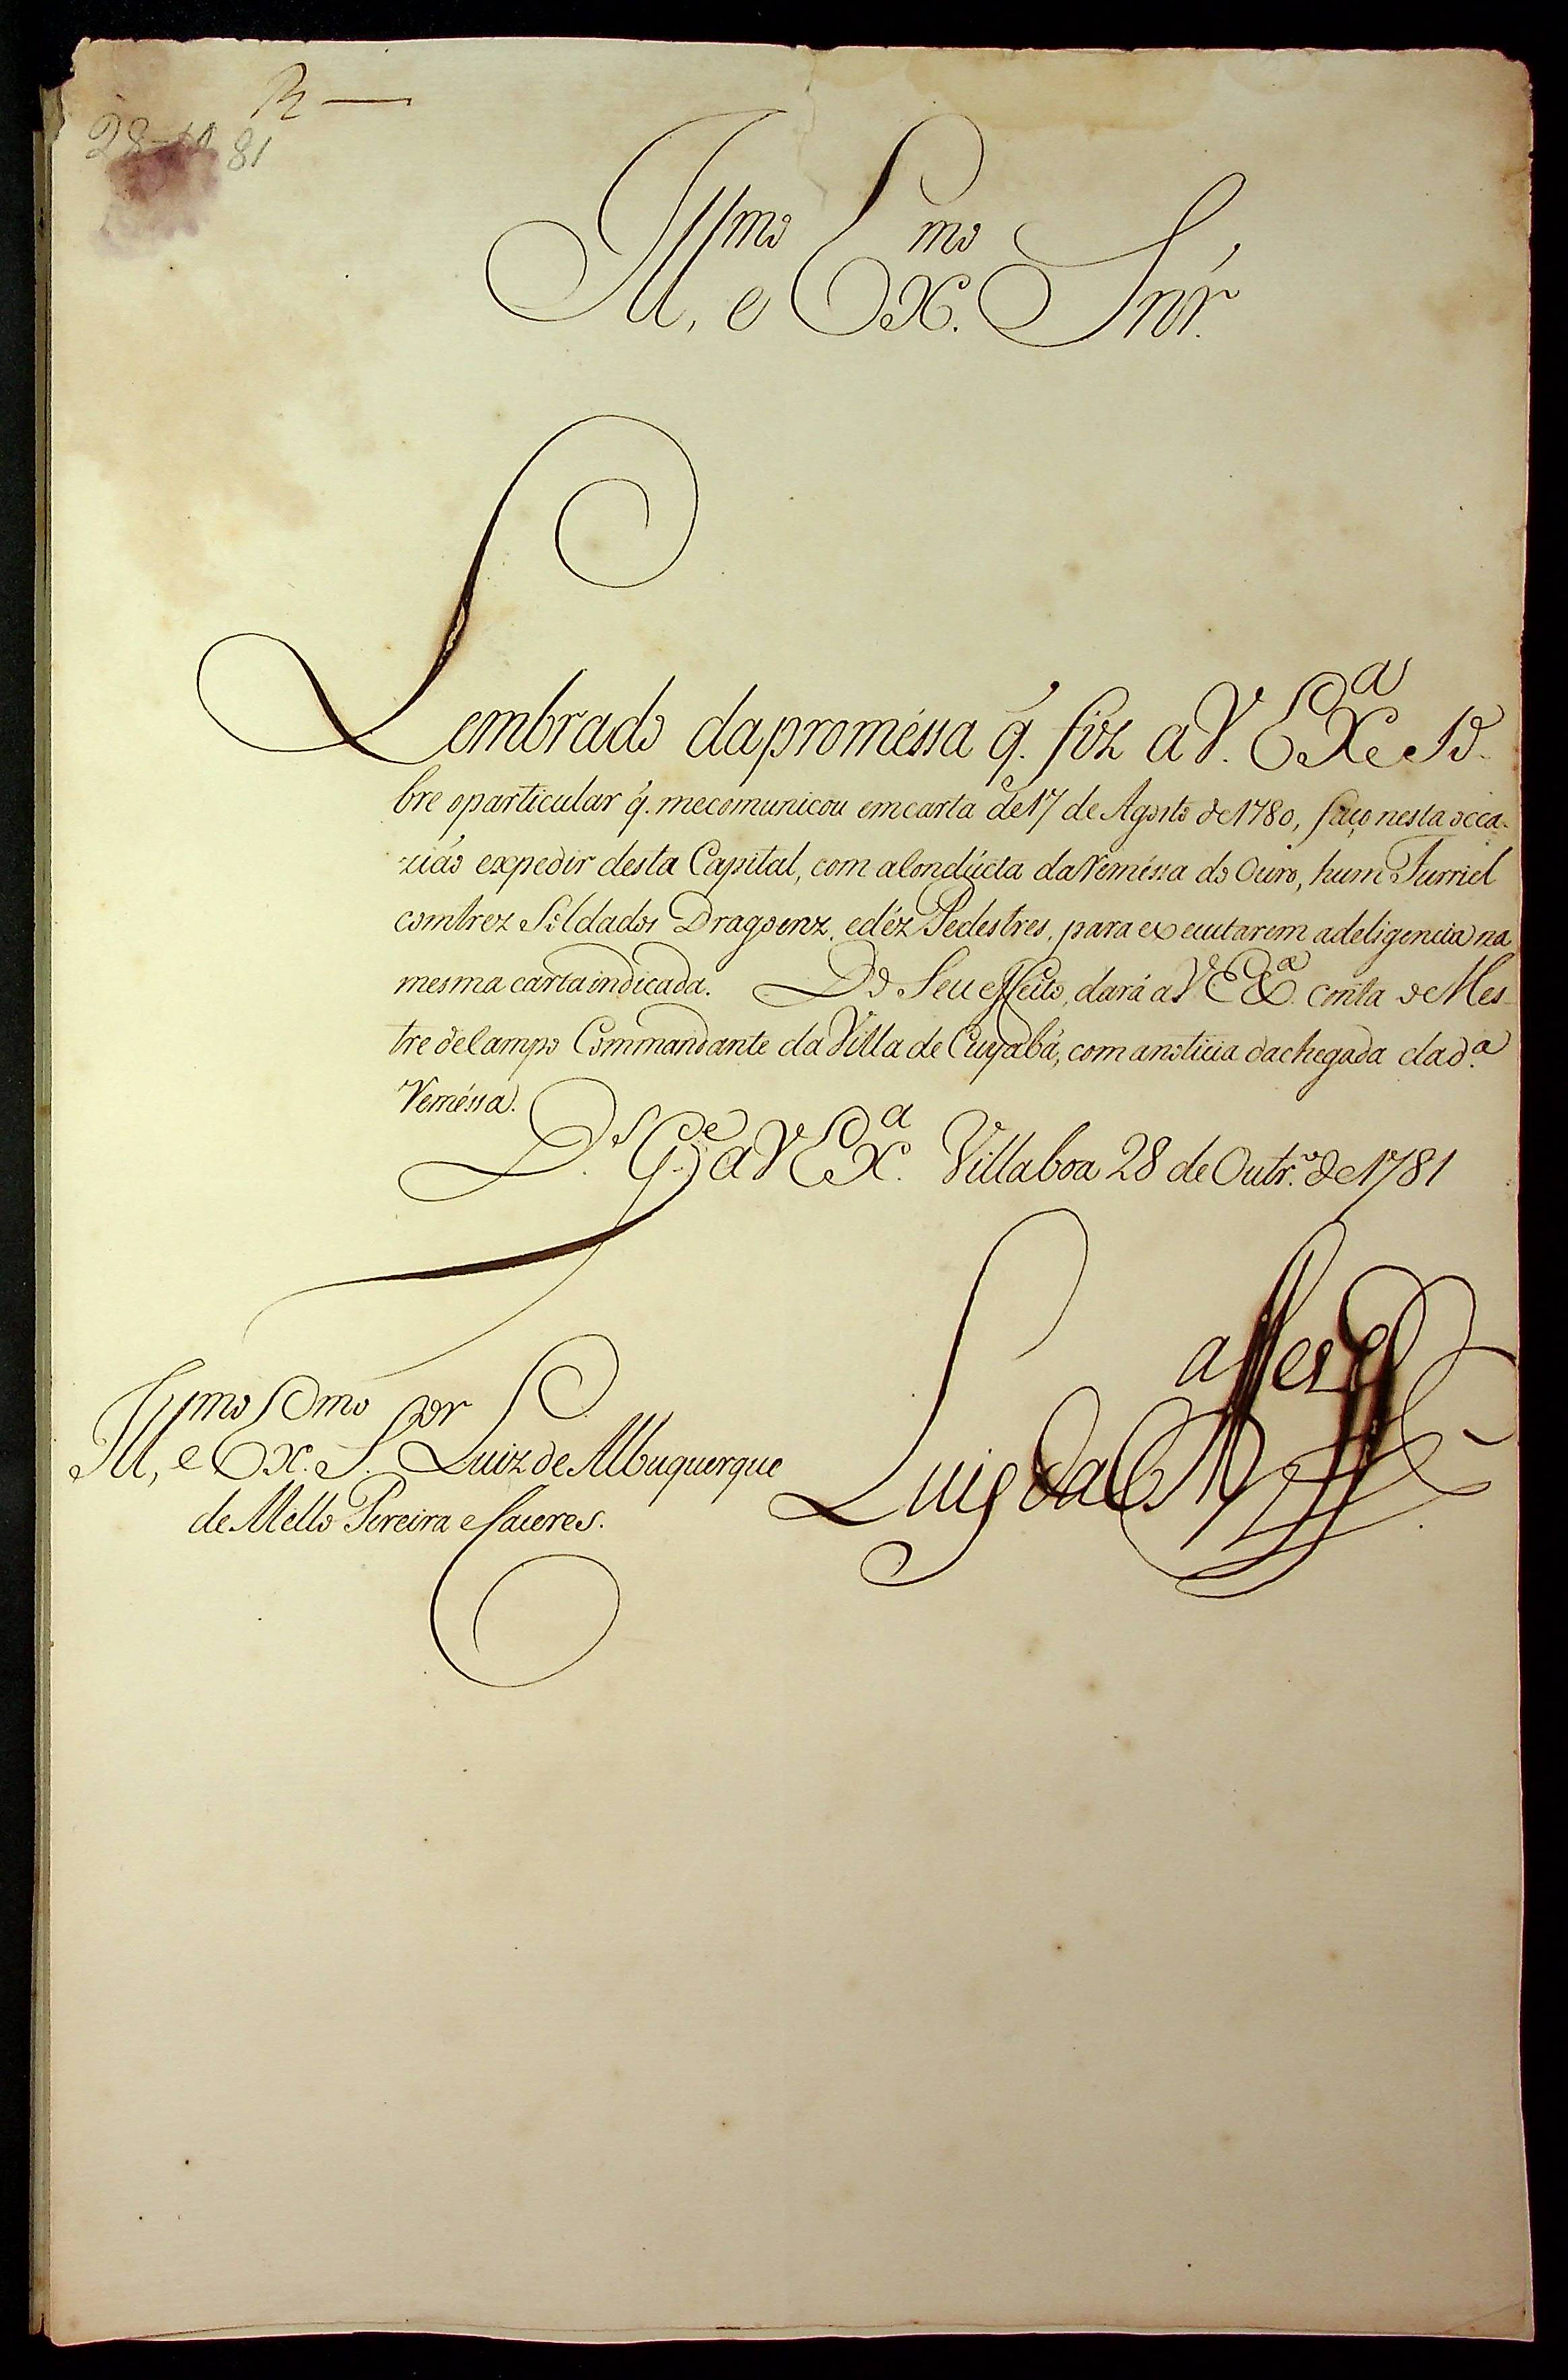 R
28-10 81
Ill.mo e Ex.mo Snr.
Lembrado da proméssa q. fiz a V. Ex.a so-
bre o particular q. me comunicou em carta de 17 de Agosto de 1780, faço nesta occa-
zião expedir desta Capital, com a Condúcta da Reméssa do Ouro, hum Furriel
com trez Soldados Dragoenz, e déz Pedestres, para executarem a deligencia na
mesma carta indicada. Do Seu effeito, dará a V Ex.a conta o Mes-
tre de Campo Commandante da Villa de Cuyabá, com a noticia da chegada da d.a
Reméssa.
D.s G.e a V Ex.a Villa boa 28 de Outr.o de 1781
Ill.mo e Ex.mo S.or Luiz de Albuquerque
de Mello Pereira e Caceres.
Luis da